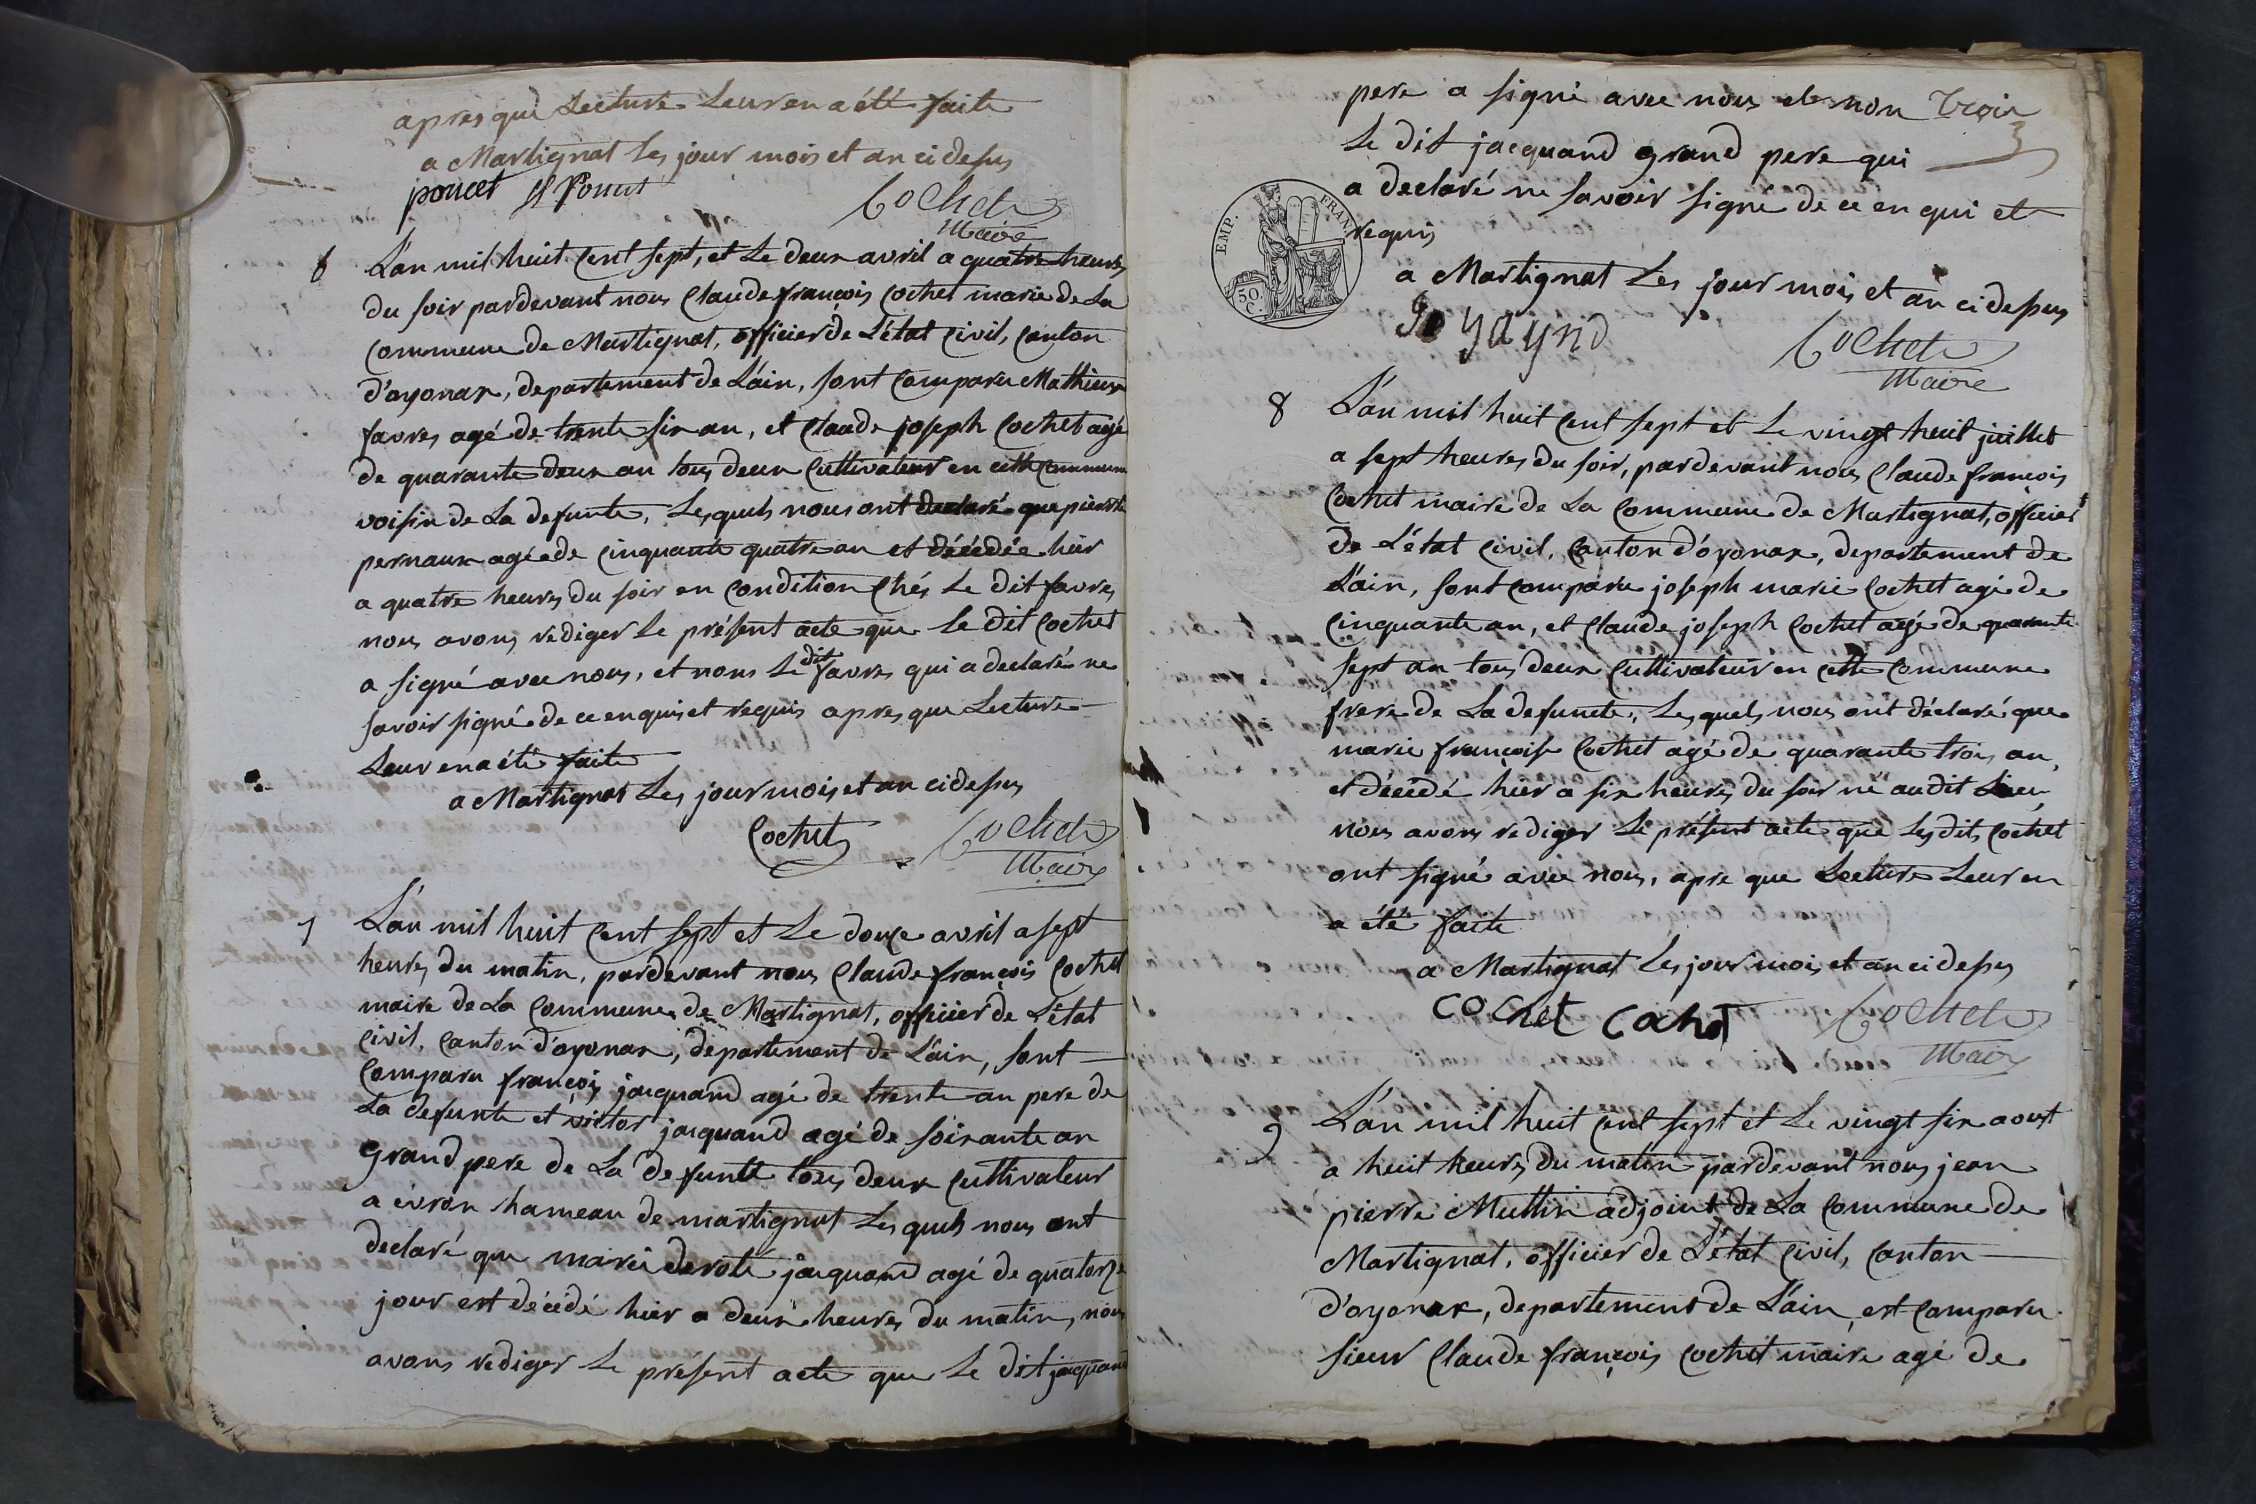 apres que Lecture Leur en a été faite
a Martignat Les jour mois et an ci desus
poncet
Cochet
Maire
6
L'an mil huit Cent sept, et Le deux avril a quatre heures
du soir pardevant nous Claude françois Cochet marie de La
Commune de Martignat, officier de L'état Civil, Canton
d'oyonax, departement de L'ain, sont Comparu Mathieux
favres agé de trente six an, et Claude joseph Cochet agé
de quarante deux an tous deux Cultivateur en cette Commune
voisin de La defunte, Lesquels nous ont declaré que pierrette
pernaux agée de cinquante quatre an et décédée hier
a quatre heures du soir en Condition Chés Le dit favres
nous avons rediger Le présent acte que Le dit Cochet
a signé avec nous, et nons Le dit favres qui a declaré ne
savoir signé de ce enquis et requis apres que Lecture
Leur en a été faite
a Martignat Les jour mois et an ci desus
Cochet
Cochet
Maire
7
L'an mil huit Cent sept et Le douze avril a sept
heures du matin, pardevant nous Claude françois Cochet
maire de La Commune de Martignat, officier de L'état
Civil, Canton d'oyonax, departement de L'ain, sont
Comparu françois jacquand agé de trente an pere de
La defunte et victor jacquand agé de soixante an
grand pere de La defunte tous deux Cultivateur
a evron hameau de martignat Lesquels nous ont
declaré que marie derote jacquand agé de quatorze
jour est décédé hier a deux heures du matin, nous
avons rediger Le présent acte que Le dit jacquand
pere a signé avec nous et non
trois
3
Le dit jacquand grand pere qui
a declaré ne savoir signé de ce en qui et
requis
EMP. FRAN.
50. C.
a Martignat Les jour mois et an ci desus
Cochet
Maire
8
L'an mil huit Cent sept et Le vingt huit juillet
a sept heures du soir, pardevant nous Claude françois
Cochet maire de La Commune de Martignat, officier
de L'état Civil, Canton d'oyonax, departement de
L'ain, sont Comparu joseph marie Cochet agé de
Cinquante an, et Claude joseph Cochet agé de quarante
sept an tous deux Cultivateur en cette Commune
frere de La defuncte, Lesquels nous ont déclaré que
marie françoise Cochet agé de quarante trois an,
et décédé hier a six heures du soir né au dit Lieu
nous avons rediger Le présent acte que Les dits Cochet
ont signé avec nous, apre que Lecture Leur en
a été faite
a Martignat Les jour mois et an ci desus
cochet Cohet
Cochet
Maire
9
L'an mil huit Cent sept et Le vingt six aoust
a huit heures du matin pardevant nous jean
pierre Muttin adjoint de La Commune de
Martignat, officier de L'état Civil, Canton
d'oyonax, departement de L'ain, est Comparu
sieur Claude françois Cochet maire agé de